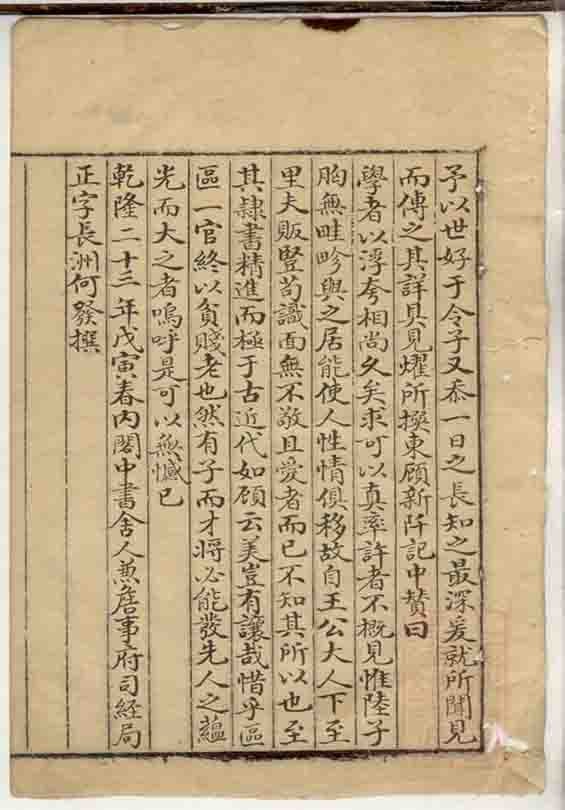 予以世好于令子又忝一日之長知之最深爰就所聞見
而傳之其詳具見燿所撰東顧新阡記中贊曰
學者以浮夸相尚久矣求可以真率許者不概見惟陸子
胸無畦畛與之居能使人性情俱移故自王公大人下至
里夫販豎苟識面無不敬且愛者而已不知其所以也至
其隸書精進而極于古近代如顧云美豈有讓哉惜乎區
區一官終以貧賤老也然有子而才將必能發先人之蘊
光而大之者嗚呼是可以無憾已
乾隆二十三年戊寅春内閣中書舍人兼詹事府司經局
正字長洲何發撰